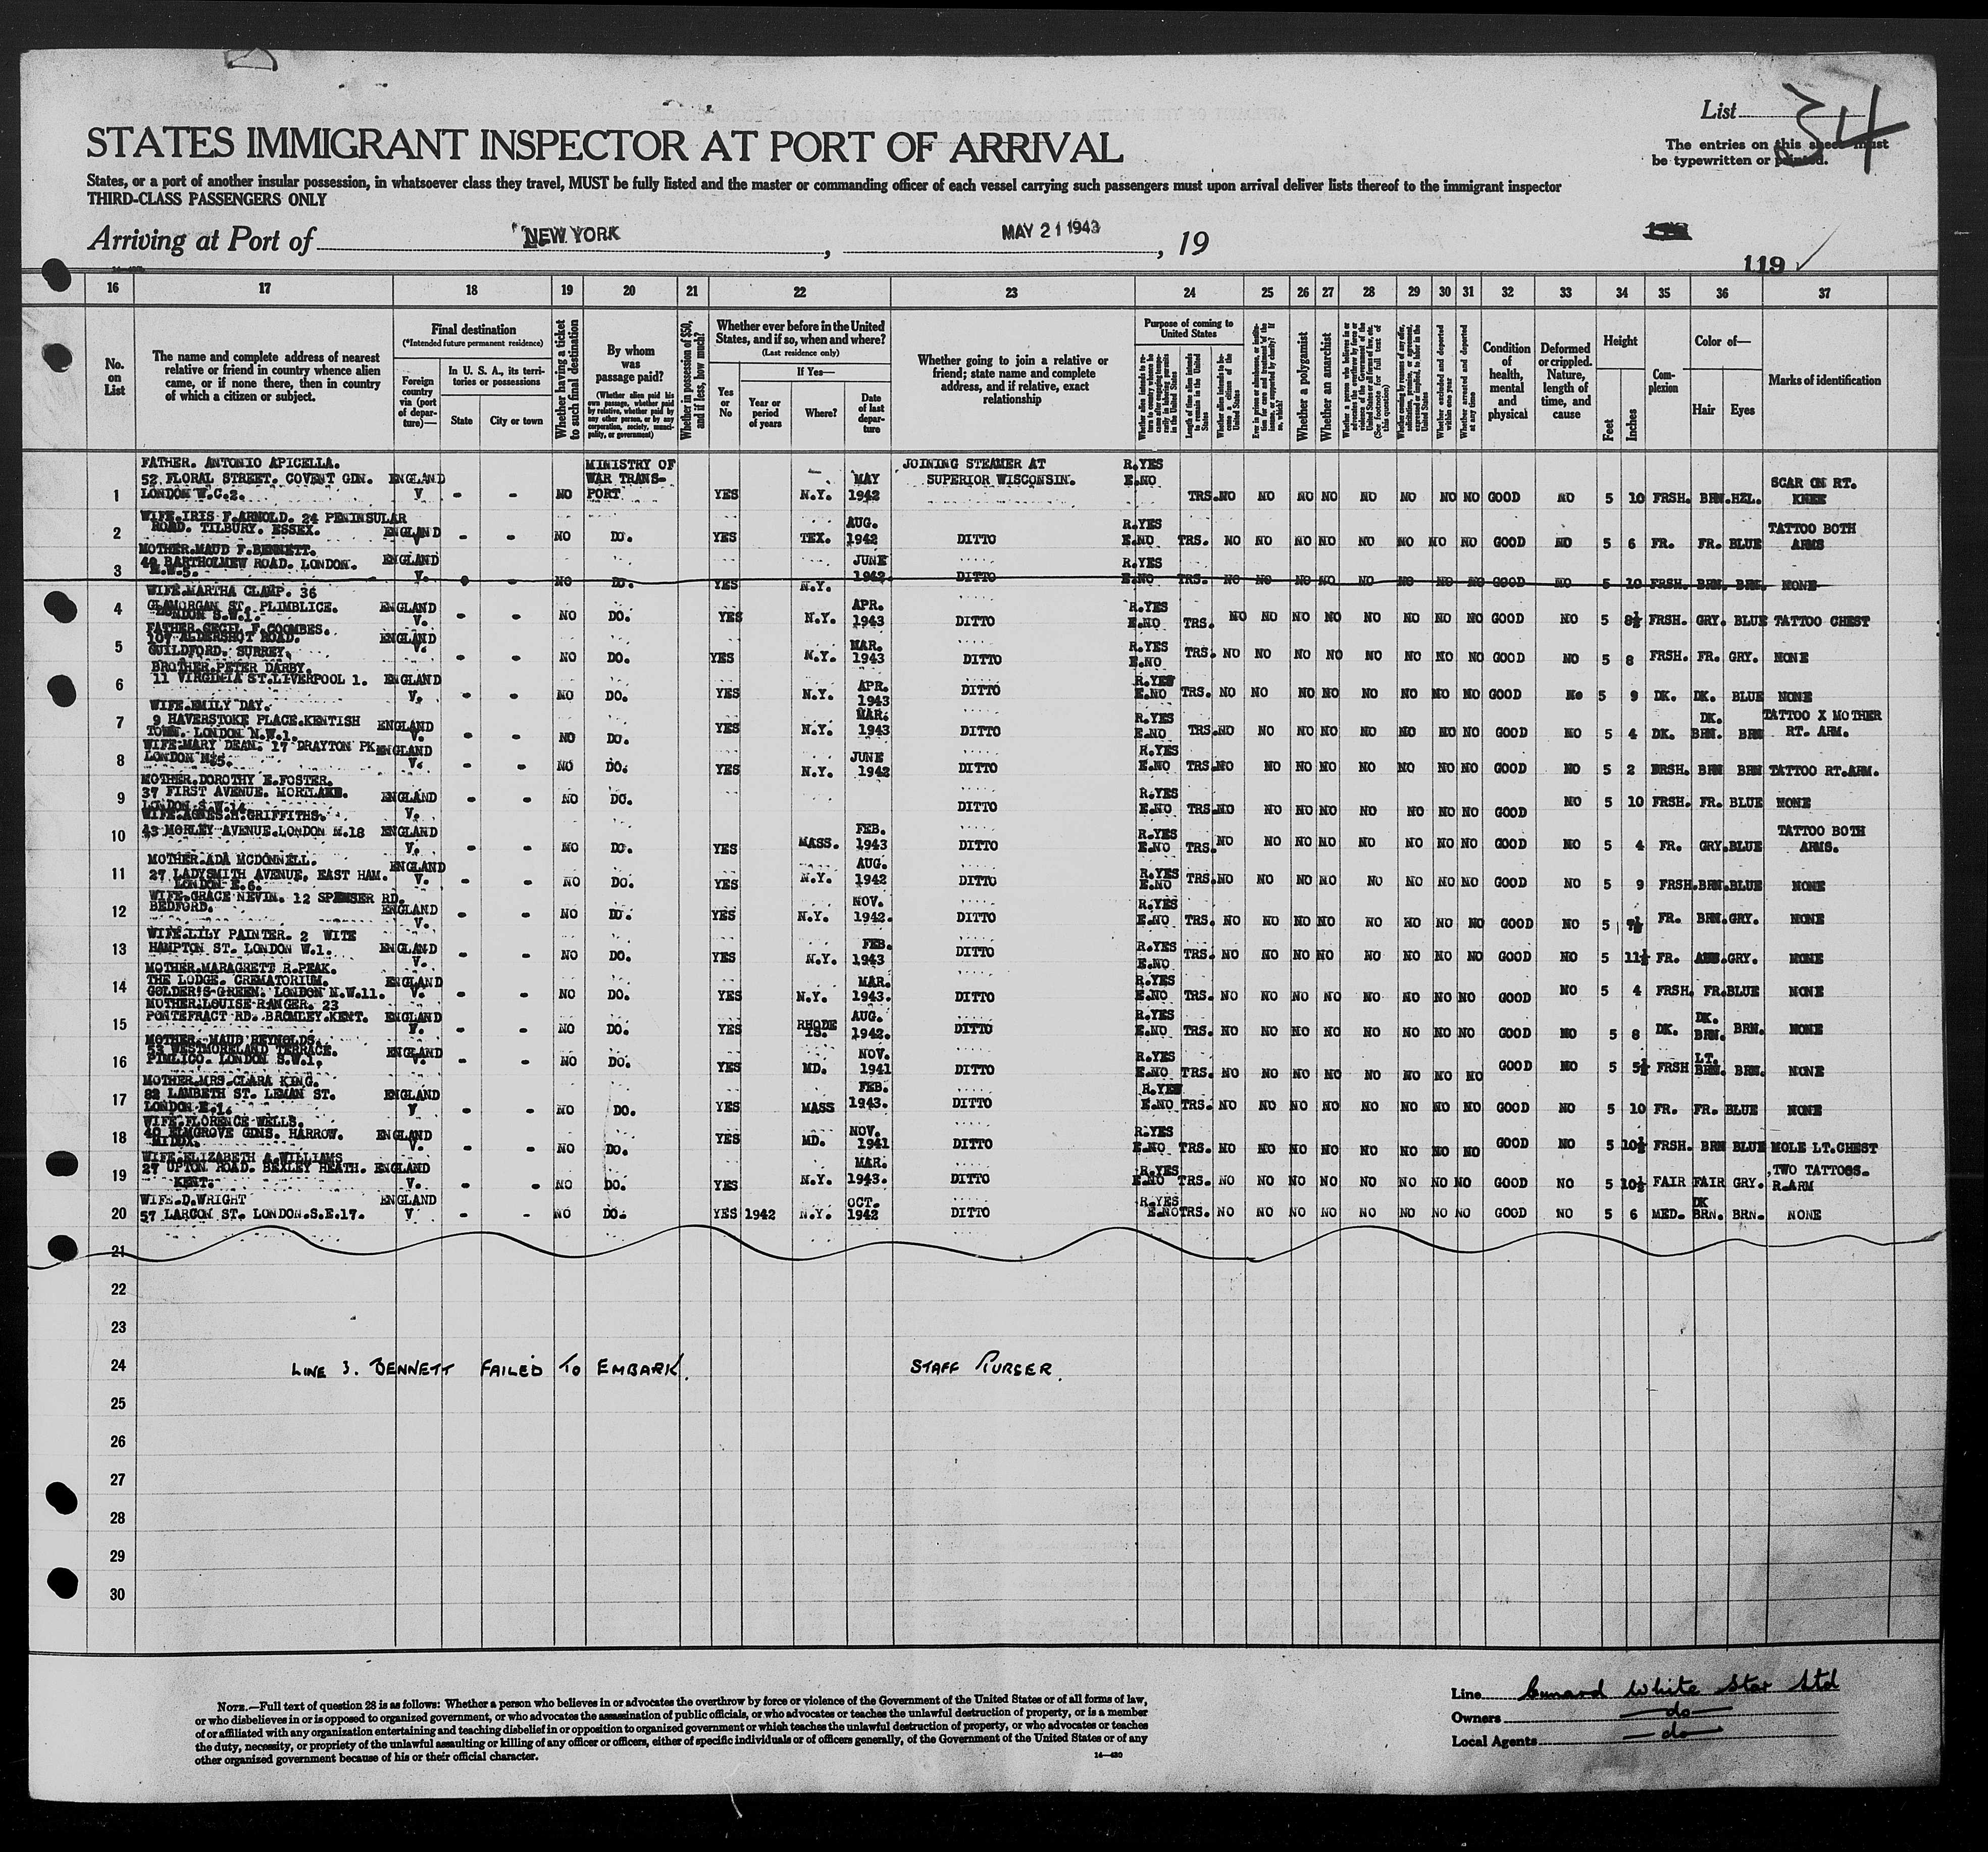 List 34
The entries on this sheet must
be typewritten or printed.
STATES IMMIGRANT INSPECTOR AT PORT OF ARRIVAL
States, or a port of another insular possession, in whatsoever class they travel, MUST be fully listed and the master or commanding officer of each vessel carrying such passengers must upon arrival deliver lists thereof to the immigrant inspector
THIRD-CLASS PASSENGERS ONLY
Arriving at Port of NEW YORK, MAY 21 1943, 19
119 ✓
16 17 18 19 20 21 22 23 24 25 26 27 28 29 30 31 32 33 34 35 36 37
No. on List
The name and complete address of nearest relative or friend in country whence alien came, or if none there, then in country of which a citizen or subject.
Final destination
(*Intended future permanent residence)
Foreign country via (port of departure)—
In U. S. A., its territories or possessions
State
City or town
Whether having a ticket to such final destination
By whom was passage paid?
(Whether alien paid his own passage, whether paid by relative, whether paid by any other person, or by any corporation, society, municipality, or government)
Whether in possession of $50, and if less, how much?
Whether ever before in the United States, and if so, when and where?
(Last residence only)
Yes or No
If Yes—
Year or period of years
Where?
Date of last departure
Whether going to join a relative or friend; state name and complete address, and if relative, exact relationship
Purpose of coming to United States
Length of time alien intends to remain in the United States
Whether alien intends to become a citizen of the United States
Whether a polygamist
Whether an anarchist
Whether excluded and deported within one year
Whether arrested and deported at any time
Condition of health, mental and physical
Deformed or crippled. Nature, length of time, and cause
Height
Feet
Inches
Complexion
Color of—
Hair
Eyes
Marks of identification
1 FATHER. ANTONIO APICELLA. 52 FLORAL STREET. COVENT GDN. LONDON W.C.2. ENGLAND V - - NO MINISTRY OF WAR TRANSPORT YES N.Y. MAY 1942 JOINING STEAMER AT SUPERIOR WISCONSIN. R.YES E.NO TRS. NO NO NO NO NO NO NO NO GOOD NO 5 10 FRSH. BRN. HZL. SCAR ON RT. KNEE
2 WIFE.IRIS F.ARNOLD. 24 PENINSULAR ROAD. TILBURY. ESSEX. ENGLAND V - - NO DO. YES TEX. AUG. 1942 DITTO R.YES E.NO TRS. NO NO NO NO NO NO NO NO GOOD NO 5 6 FR. FR. BLUE TATTOO BOTH ARMS
3 MOTHER.MAUD F.BENNETT. 49 BARTHOLMEW ROAD. LONDON. N.W.5. ENGLAND V. - - NO DO. YES N.Y. JUNE 1942 DITTO R.YES E.NO TRS. NO NO NO NO NO NO NO NO GOOD NO 5 10 FRSH. BRN. BRN. NONE
4 WIFE.MARTHA CLAMP. 36 GLAMORGAN ST. PLIMBLICE. LONDON S.W.1. ENGLAND V. - - NO DO. YES N.Y. APR. 1943 DITTO R.YES E.NO TRS. NO NO NO NO NO NO NO NO GOOD NO 5 8½ FRSH. GRY. BLUE TATTOO CHEST
5 FATHER.CECIL F.COOMBES. 107 ALDERSHOT ROAD. GUILDFORD. SURREY. ENGLAND V. - - NO DO. YES N.Y. MAR. 1943 DITTO R.YES E.NO TRS. NO NO NO NO NO NO NO NO GOOD NO 5 8 FRSH. FR. GRY. NONE
6 BROTHER.PETER DARBY. 11 VIRGINIA ST.LIVERPOOL 1. ENGLAND V. - - NO DO. YES N.Y. APR. 1943 DITTO R.YES E.NO TRS. NO NO NO NO NO NO NO NO GOOD No 5 9 DK. DK. BLUE NONE
7 WIFE.EMILY DAY. 9 HAVERSTOKE PLACE.KENTISH TOWN. LONDON N.W.1. ENGLAND V. - - NO DO. YES N.Y. MAR. 1943 DITTO R.YES E.NO TRS. NO NO NO NO NO NO NO NO GOOD NO 5 4 DK. DK. BRN. BRN TATTOO X MOTHER RT. ARM.
8 WIFE.MARY DEAN. 17 DRAYTON PK. LONDON N.5. ENGLAND V. - - NO DO. YES N.Y. JUNE 1942 DITTO R.YES E.NO TRS. NO NO NO NO NO NO NO NO GOOD NO 5 2 FRSH. BRN BRN TATTOO RT.ARM.
9 MOTHER.DOROTHY E.FOSTER. 37 FIRST AVENUE. MORTLAKE. LONDON.S.W.14. ENGLAND V. - - NO DO. DITTO R.YES E.NO TRS. NO NO NO NO NO NO NO NO GOOD NO 5 10 FRSH. FR. BLUE NONE
10 WIFE.AGNES.H.GRIFFITHS. 43 MORLEY AVENUE.LONDON N.18 ENGLAND V. - - NO DO. YES MASS. FEB. 1943 DITTO R.YES E.NO TRS. NO NO NO NO NO NO NO NO GOOD NO 5 4 FR. GRY. BLUE TATTOO BOTH ARMS.
11 MOTHER.ADA MCDONNELL. 27 LADYSMITH AVENUE. EAST HAM. LONDON E.6. ENGLAND V. - - NO DO. YES N.Y. AUG. 1942 DITTO R.YES E.NO TRS. NO NO NO NO NO NO NO NO GOOD NO 5 9 FRSH. BRN. BLUE NONE
12 WIFE.GRACE NEVIN. 12 SPENSER RD. BEDFORD. ENGLAND V. - - NO DO. YES N.Y. NOV. 1942. DITTO R.YES E.NO TRS. NO NO NO NO NO NO NO NO GOOD NO 5 FR. BRN. GRY. NONE
13 WIFE.LILY PAINTER. 2 WITE HAMPTON ST. LONDON W.1. ENGLAND V. - - NO DO. YES N.Y. FEB. 1943 DITTO R.YES E.NO TRS. NO NO NO NO NO NO NO NO GOOD NO 5 11½ FR. GRY. NONE
14 MOTHER.MARAGRETT R.PEAK. THE LODGE. CREMATORIUM. GOLDER'S GREEN. LONDON N.W.11. ENGLAND V. - - NO DO. YES N.Y. MAR. 1943. DITTO R.YES E.NO TRS. NO NO NO NO NO NO NO NO GOOD NO 5 4 FRSH. FR. BLUE NONE
15 MOTHER.LOUISE RANGER. 23 PONTEFRACT RD. BROMLEY.KENT. ENGLAND V. - - NO DO. YES RHODE IS. AUG. 1942. DITTO R.YES E.NO TRS. NO NO NO NO NO NO NO NO GOOD NO 5 8 DK. DK. BRN. BRN. NONE
16 MOTHER. MAUD REYNOLDS. 53 WESTMORELAND TERRACE. PIMLICO. LONDON S.W.1. ENGLAND V. - - NO DO. YES MD. NOV. 1941 DITTO R.YES E.NO TRS. NO NO NO NO NO NO NO NO GOOD NO 5 5½ FRSH LT. BRN. BRN. NONE
17 MOTHER.MRS.CLARA KING. 82 LAMBETH ST. LEMAN ST. LONDON E.1. ENGLAND V - - NO DO. YES MASS FEB. 1943. DITTO R.YES E.NO TRS. NO NO NO NO NO NO NO NO GOOD NO 5 10 FR. FR. BLUE NONE
18 WIFE.FLORENCE WELLS. 40 ELMGROVE GDNS. HARROW. MIDDX. ENGLAND V. - - NO DO. YES MD. NOV. 1941 DITTO R.YES E.NO TRS. NO NO NO NO NO NO NO NO GOOD NO 5 10½ FRSH. BRN BLUE MOLE LT.CHEST
19 WIFE.ELIZABETH A.WILLIAMS 27 UPTON ROAD. BEXLEY HEATH. KENT. ENGLAND V. - - NO DO. YES N.Y. MAR. 1943. DITTO R.YES E.NO TRS. NO NO NO NO NO NO NO NO GOOD NO 5 10½ FAIR FAIR GRY. TWO TATTOOS. R.ARM
20 WIFE.D.WRIGHT 57 LARCOM ST. LONDON.S.E.17. ENGLAND V - - NO DO. YES 1942 N.Y. OCT. 1942 DITTO R.YES E.NO TRS. NO NO NO NO NO NO NO NO GOOD NO 5 6 MED. DK BRN. BRN. NONE
21
22
23
24 LINE 3. BENNETT FAILED TO EMBARK. STAFF PURSER.
25
26
27
28
29
30
NOTE.—Full text of question 28 is as follows: Whether a person who believes in or advocates the overthrow by force or violence of the Government of the United States or of all forms of law,
or who disbelieves in or is opposed to organized government, or who advocates the assassination of public officials, or who advocates or teaches the unlawful destruction of property, or is a member
of or affiliated with any organization entertaining and teaching disbelief in or opposition to organized government or which teaches the unlawful destruction of property, or who advocates or teaches
the duty, necessity, or propriety of the unlawful assaulting or killing of any officer or officers, either of specific individuals or of officers generally, of the Government of the United States or of any
other organized government because of his or their official character.
14—430
Line Cunard White Star Ltd
Owners —do—
Local Agents —do—